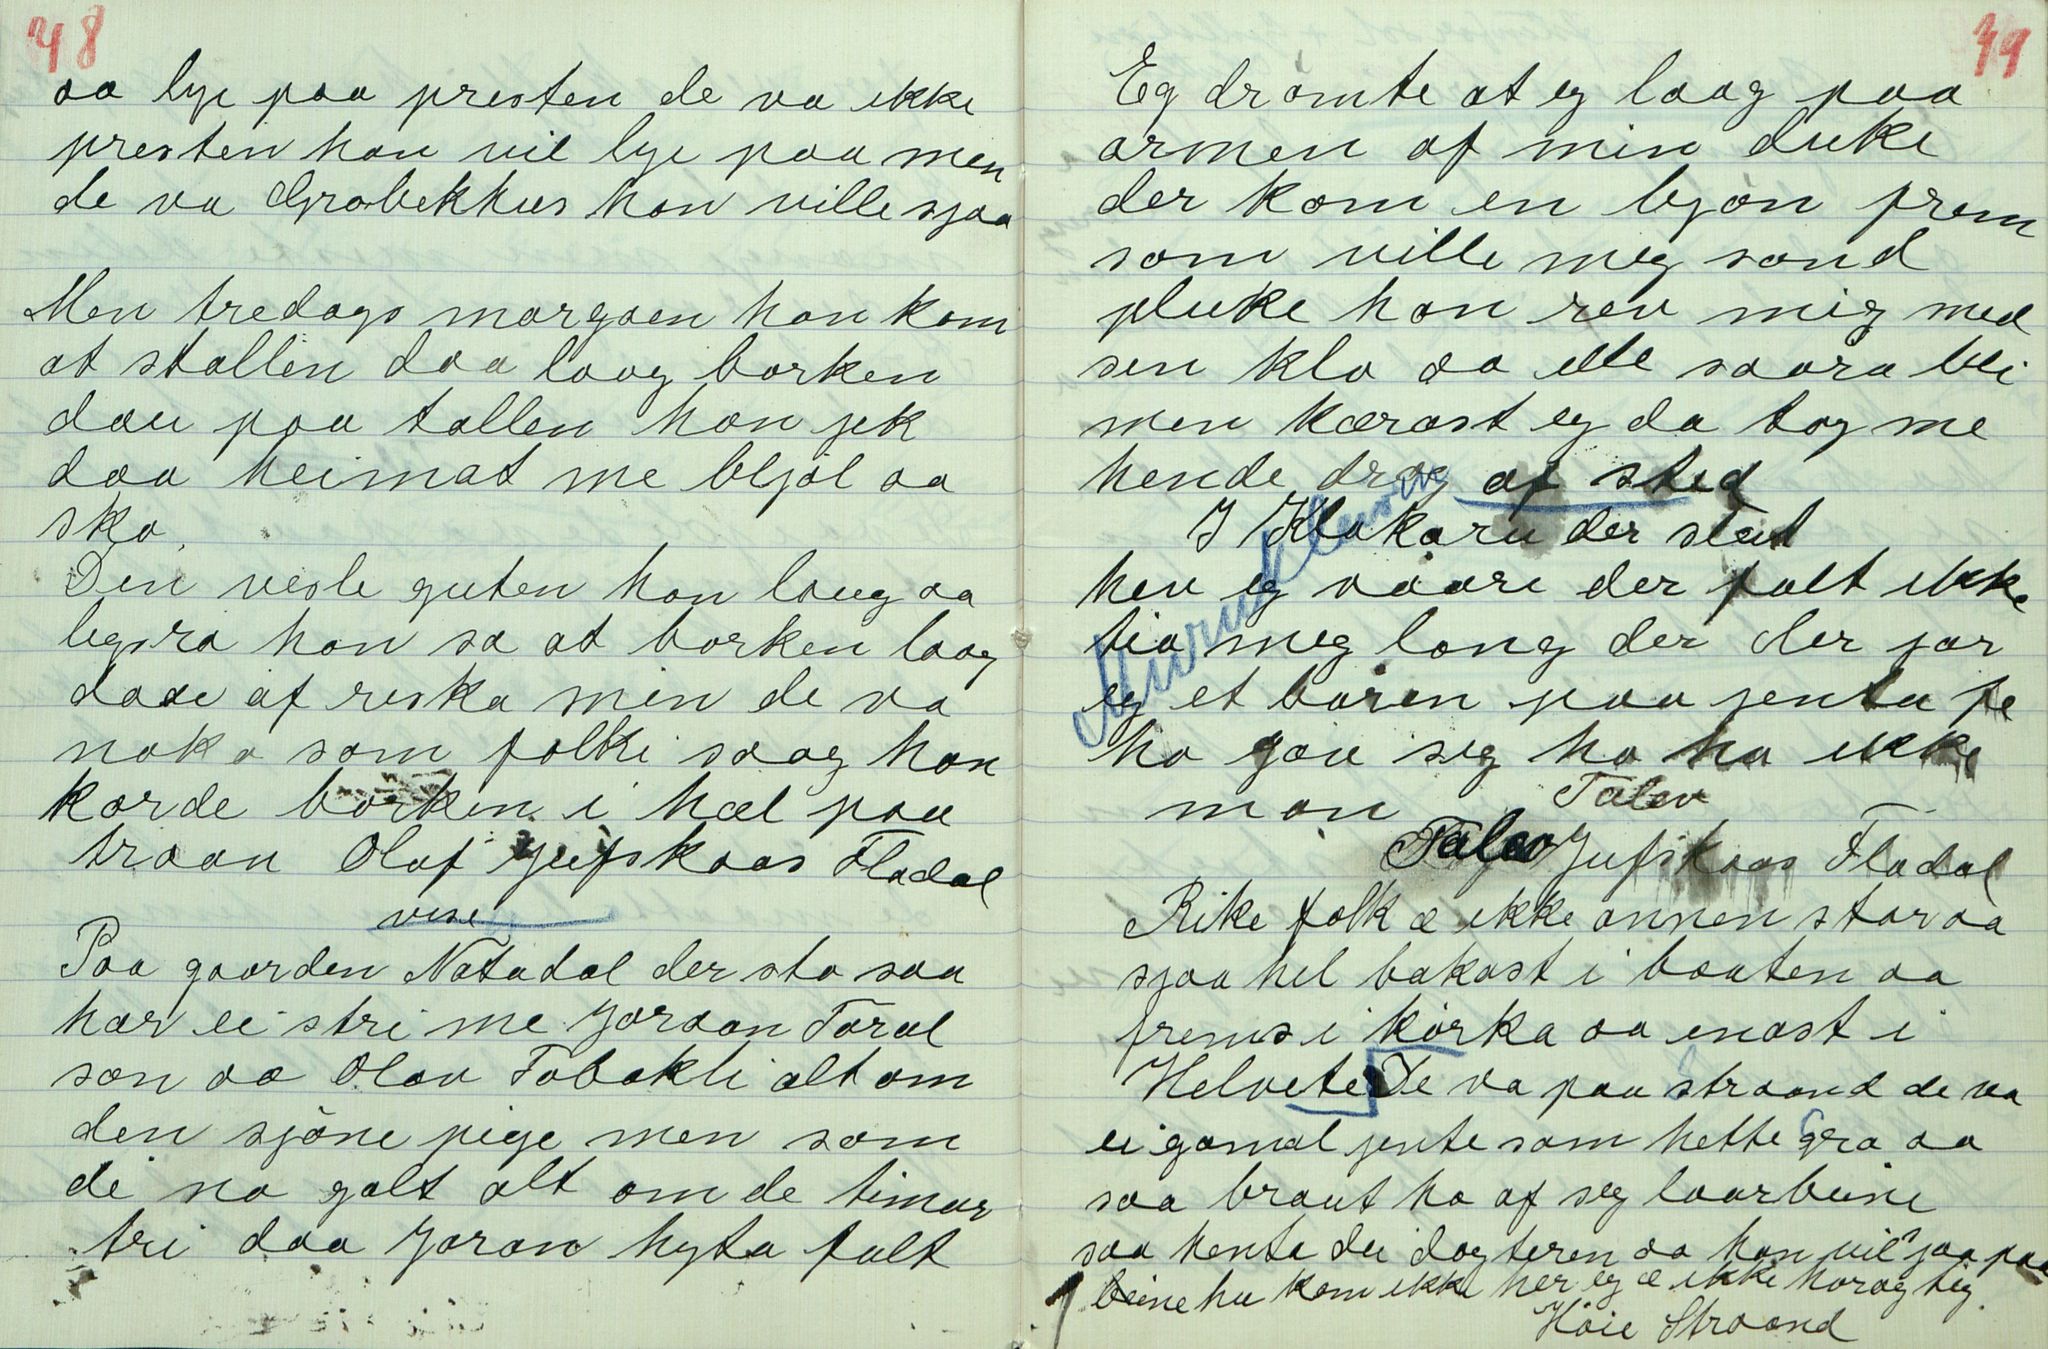 48
aa lye paa presten de va ikke
presten han vil lye paa men
de va Grobekkhus han ville sjaa
Men tredags morgaen han kom
at stallen daa laag borken
dau paa tallen han jek
daa heimat me bljøl aa
sko.
Den vesle guten han laug aa
bgsra han sa at borken laag
daae af reska men de va
noka som folki saag han
kørde borken i hæl paa
traaan Olaf Jufskaas Fladal
vise
Paa gaarden Natadal der sto saa
har ei stri me Joraan Taral
søn aa Olav Tobakli alt om
den sjöne pige men som
di na galt alt om de timar
tri daa Joron hyta fult
49
Eg drømte at eg laag paa
armen af min duke
der kom en bjøn frem
som ville meg sønd
pluke han rev mig med
sen klo aa ille saara blei
men kærast eg da tog me
hende drog af sted
I Klokaru der sleut
hen eg vaare der falt ikke
tia meg long der der jor
eg et baren paa jenta fe
ho gav seg ho ha ikke
mon Talev
Talev Jufskaas Fladal
Rike folk æ ikke annen stor aa
sjaa hel bakast i baaten aa
frems i kørka aa enast i
Helvete De va paa Straand de va
ei gamal jente som hette Gro aa
saa braut ho af seg laarbeine
saa henta dei dogteren aa han vil sjaa paa
beine hu kom ikke her eg æ ikke horog tig
Höie Straand